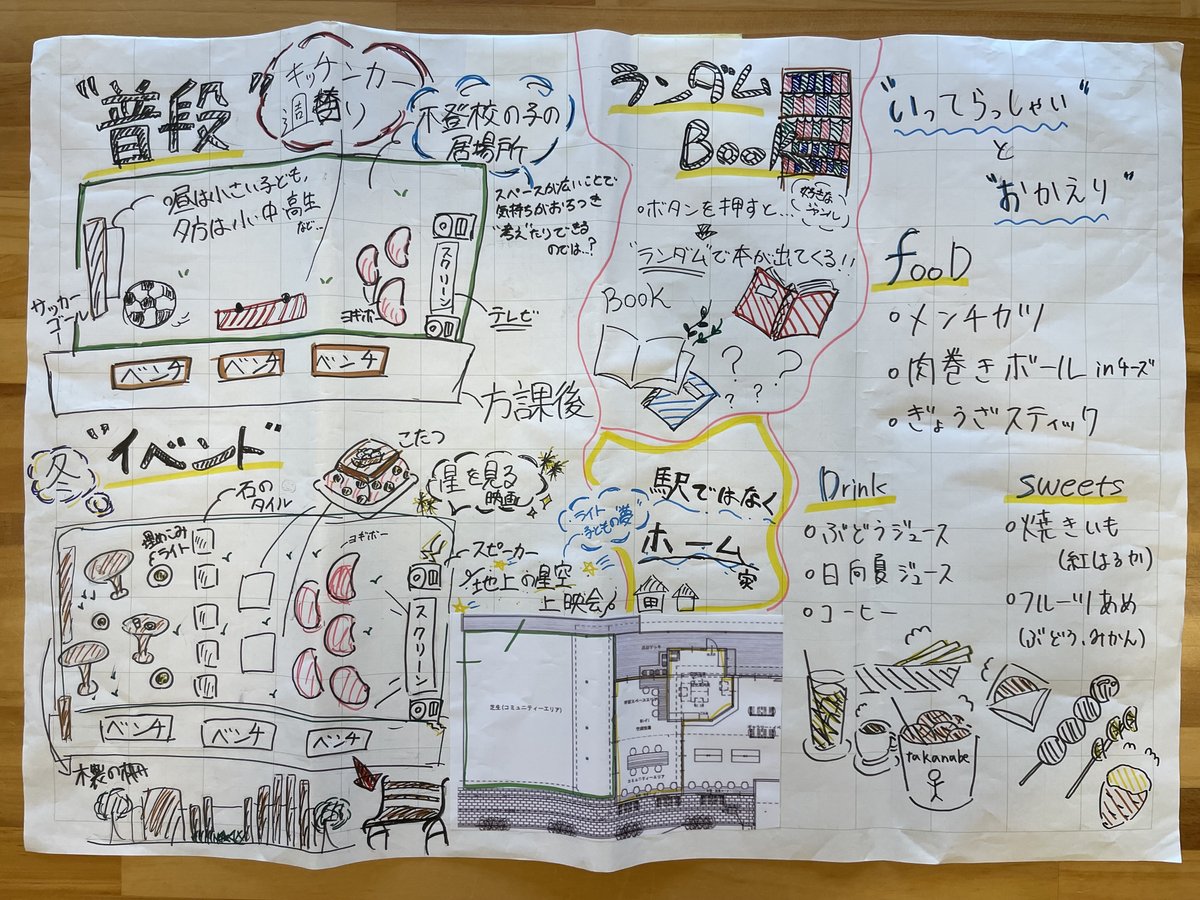 "普段"
キッチンカー
週替り
不登校の子の
居場所
スペースが広いことで
気持ちがおちつき
"考え"たりできる
のでは…?
○昼は小さい子ども、
夕方は小中高生
など…
サッカー
ゴール
ヨギボー
スクリーン
テレビ
ベンチ
ベンチ
ベンチ
放課後
冬
"イベント"
石の
タイル
こたつ
星を見る
映画
埋めこみ
ライト
ヨギボー
スピーカー
地上の星空
上映会。
スクリーン
ベンチ
ベンチ
ベンチ
木製の柵
ランダム
Book
好きな
ジャンル
○ボタンを押すと…
"ランダム"で本が出てくる!!
BOOK
? ? ? ?
駅ではなく
ホーム
家
ライト
子どもの"夢"
芝生(コミュニティーエリア)
コミュニティーエリア
"いってらっしゃい"
と
"おかえり"
fooD
○メンチカツ
○肉巻きボール inチーズ
○ぎょうざスティック
Drink
○ぶどうジュース
○日向夏ジュース
○コーヒー
sweets
○焼きいも
(紅はるか)
○フルーツあめ
(ぶどう、みかん)
takanabe